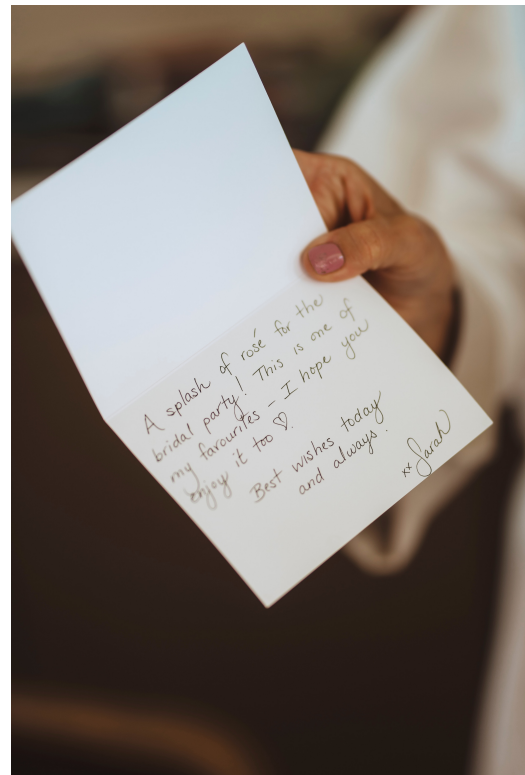 A splash of rosé for the
bridal party! This is one of
my favourites - I hope you
enjoy it too ♡.
Best wishes today
and always.
xx Sarah